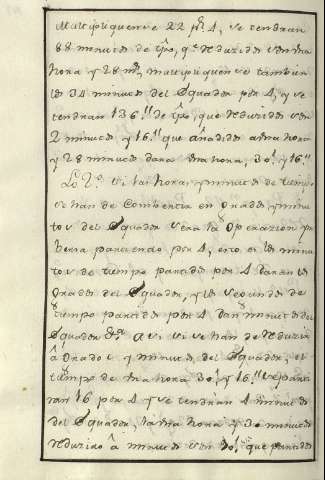 Multipliquense 22 pr. 4, se tendran
88 minutos de tpo, qe. reduzidos son una
hora y 28 ms, multipliquense tambien
los 34 minutos del Equador por 4, y se
tendran 136 " de tpo, que reduzidos son
2 minutos y 16 " que añadidos a una hora
y 28 minutos daran una hora, 30' y 16 "
Lo 2o. si las horas, y minutos de tiempo
se han de combertir en grados, y minu
tos del Equador sera la operazion in
bersa partiendo por 4, esto es los minu
tos de tiempo partidos por 4 daran los
Grados del Equador, y los segundos de
tiempo partidos por 4 dan minutos del
Equador &a. Assi si se han de reduzir
â Grados y minutos del Equador, el
tiempo de una hora 30' y 16 " se parti
ran 16 por 4 y se tendran 4 minutos
del Equador, la una hora y 30 minutos
reduzido â minutos son 90' que partidos